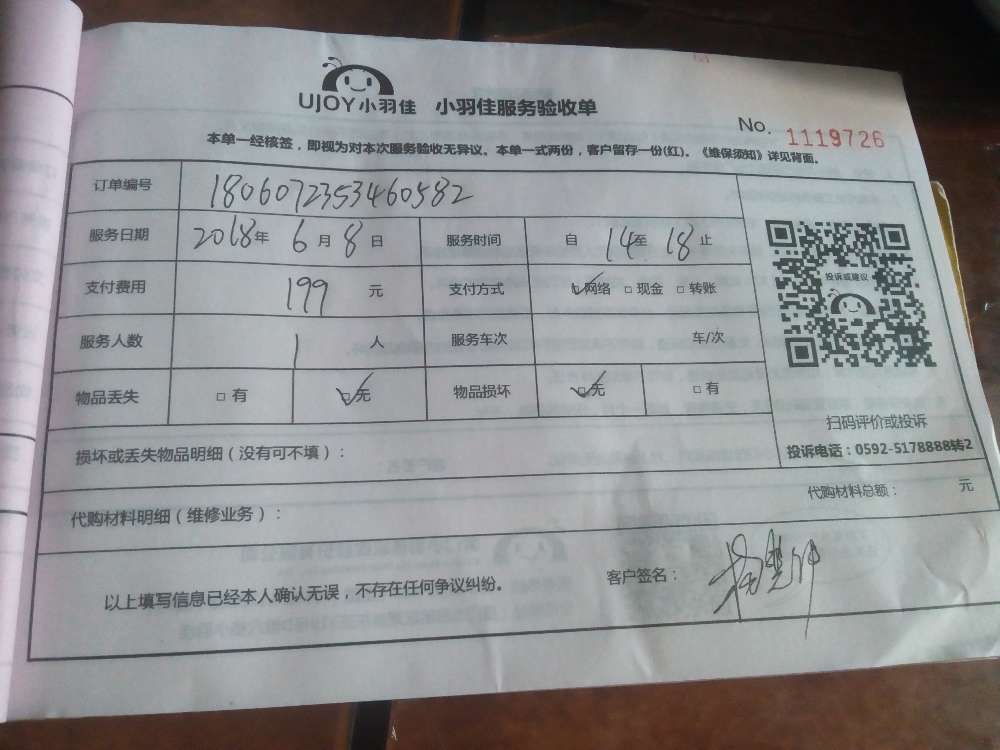 UJOY小羽佳 小羽佳服务验收单
No. 1119726
本单一经核签，即视为对本次服务验收无异议。本单一式两份，客户留存一份(红)。《维保须知》详见背面。
订单编号 1806072353460582
服务日期 2018年 6月 8日 服务时间 自 14至 18止
支付费用 199 元 支付方式 网络 □现金 □转账
服务人数 1 人 服务车次 车/次
物品丢失 □有 □无 物品损坏 □无 □有
投诉或建议
扫码评价或投诉
投诉电话：0592-5178888转2
损坏或丢失物品明细（没有可不填）：
代购材料明细（维修业务）： 代购材料总额： 元
以上填写信息已经本人确认无误，不存在任何争议纠纷。 客户签名：